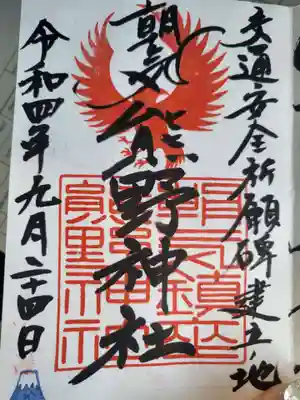 交通安全祈願碑建立ノ地
朝気熊野神社
令和四年九月二十四日